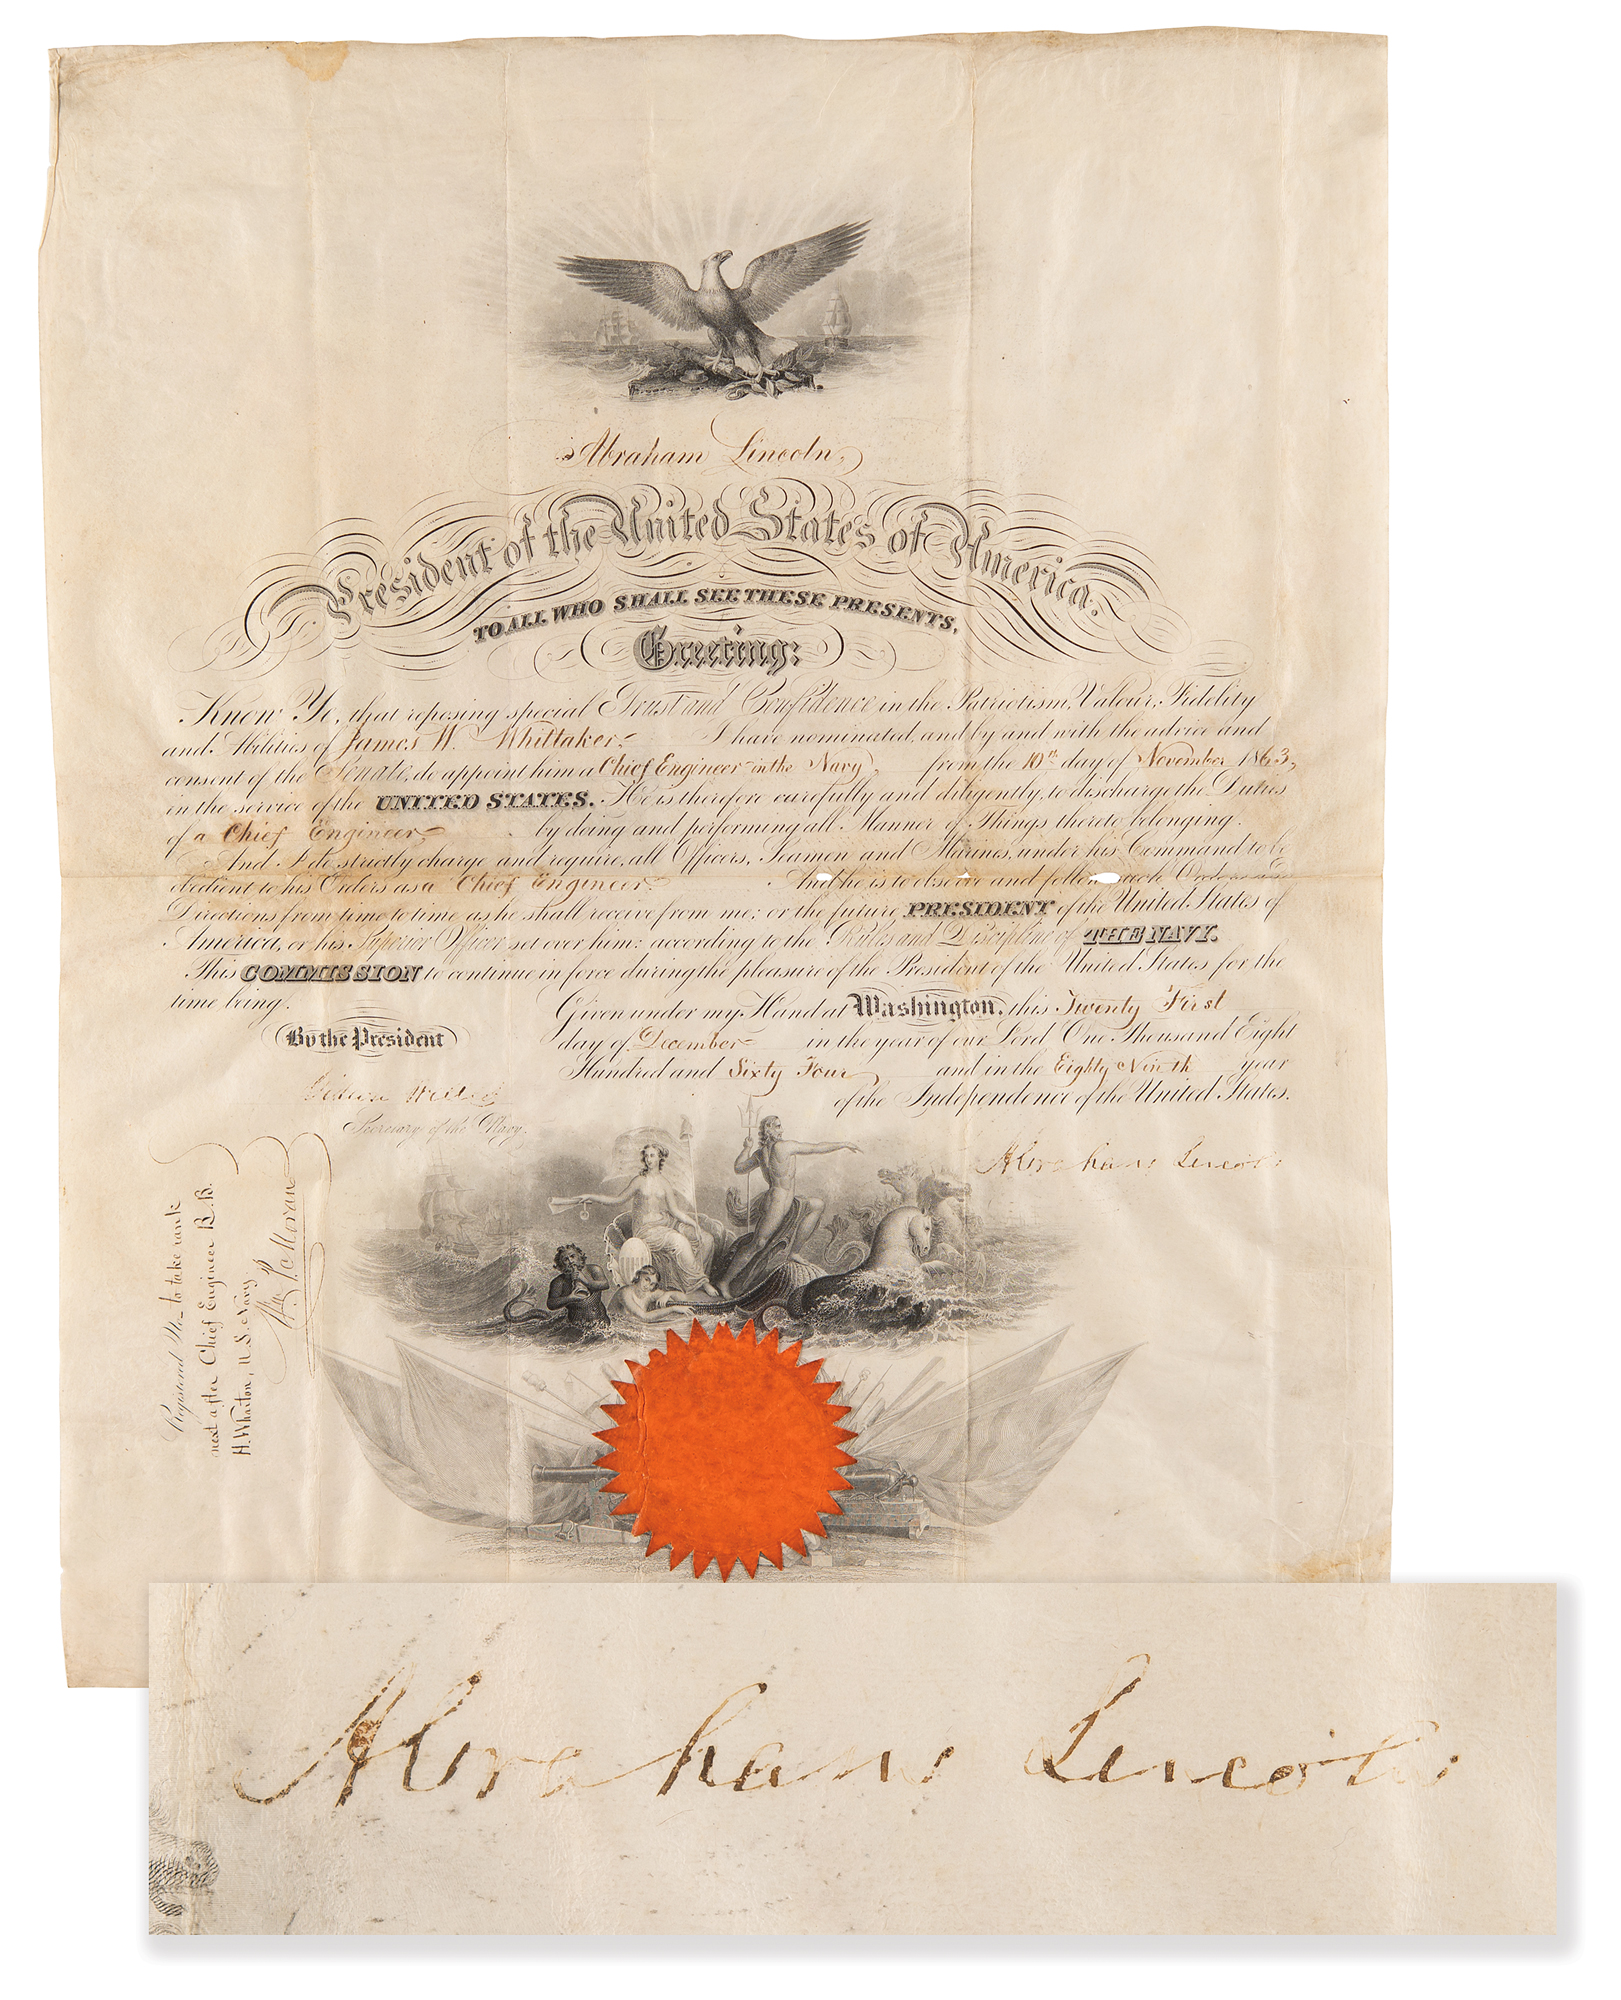 Abraham Lincoln,
President of the United States of America.
TO ALL WHO SHALL SEE THESE PRESENTS,
Greeting:
Know Ye, that reposing special Trust and Confidence in the Patriotism, Valour, Fidelity
and Abilities of James W. Whittaker I have nominated, and by and with the advice and
consent of the Senate, do appoint him a Chief Engineer in the Navy from the 10th day of November 1863,
in the service of the UNITED STATES. He is therefore carefully and diligently, to discharge the Duties
of a Chief Engineer by doing and performing all Manner of Things thereto belonging.
And I do strictly charge and require, all Officers, Seamen and Marines, under his Command to be
obedient to his Orders as a Chief Engineer. And he is to observe and follow such Orders and
Directions from time to time as he shall receive from me; or the future PRESIDENT of the United States of
America, or his Superior Officer set over him; according to the Rules and Discipline of THE NAVY.
This COMMISSION to continue in force during the pleasure of the President of the United States for the
time being.
Given under my Hand at Washington, this Twenty First
day of December in the year of our Lord One Thousand Eight
Hundred and Sixty Four and in the Eighty Ninth year
of the Independence of the United States.
By the President
Gideon Welles
Secretary of the Navy.
Abraham Lincoln
Registered No- to take rank
next after Chief Engineer B.B.
H. Wharton, U.S. Navy
Wm P. Moran
Abraham Lincoln